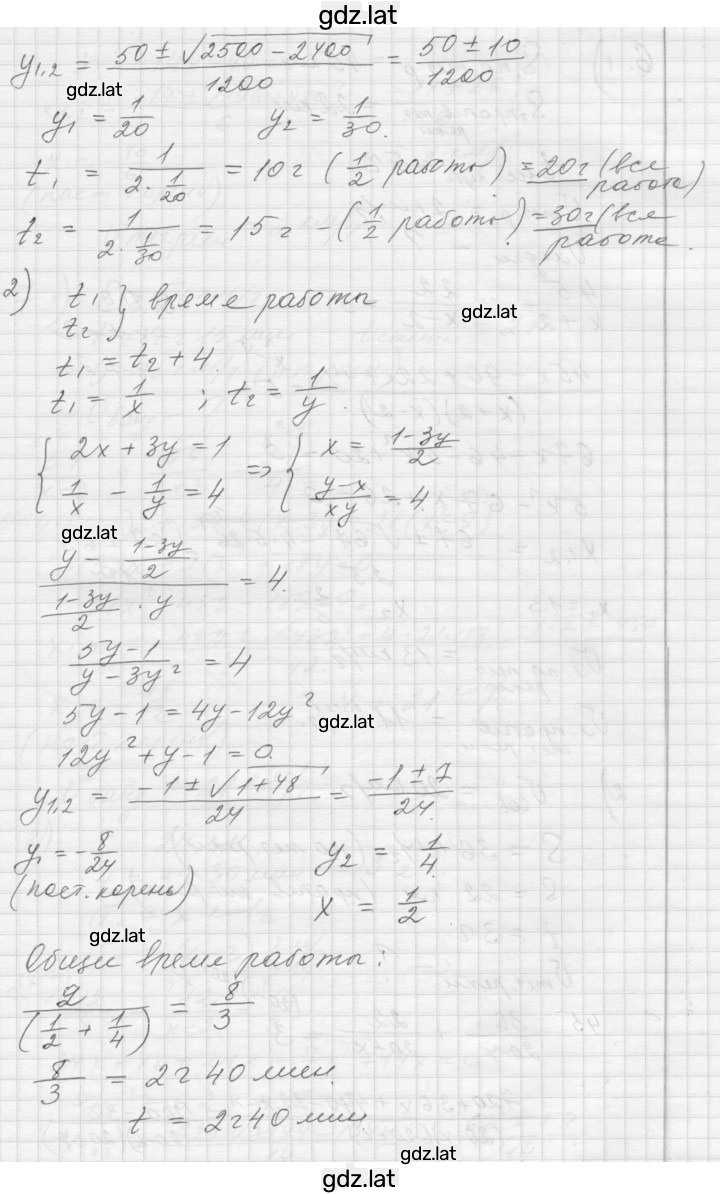 gdz.lat
y₁,₂ = (50 ± √(2500 − 2400)) / 1200 = (50 ± 10) / 1200
gdz.lat
y₁ = 1/20   y₂ = 1/30.
t₁ = 1 / (2 · 1/20) = 10 г (1/2 работы) = 20 г (вся работа)
t₂ = 1 / (2 · 1/30) = 15 г − (1/2 работы) = 30 г (вся работа.
2) t₁ t₂ } време работы
gdz.lat
t₁ = t₂ + 4.
t₁ = 1/x ; t₂ = 1/y.
{ 2x + 3y = 1   1/x − 1/y = 4 => { x = (1−3y)/2   (y−x)/(xy) = 4.
gdz.lat
(y − (1−3y)/2) / ((1−3y)/2 · y) = 4.
(5y−1) / (y−3y²) = 4
5y − 1 = 4y − 12y²
gdz.lat
12y² + y − 1 = 0.
y₁,₂ = (−1 ± √(1+48)) / 24 = (−1 ± 7) / 24.
y₁ = −8/24   y₂ = 1/4.
(пост. корень)   x = 1/2.
gdz.lat
Общи време работы:
2 / (1/2 + 1/4) = 8/3
8/3 = 2 г 40 мин.
t = 2 г 40 мин.
gdz.lat
gdz.lat